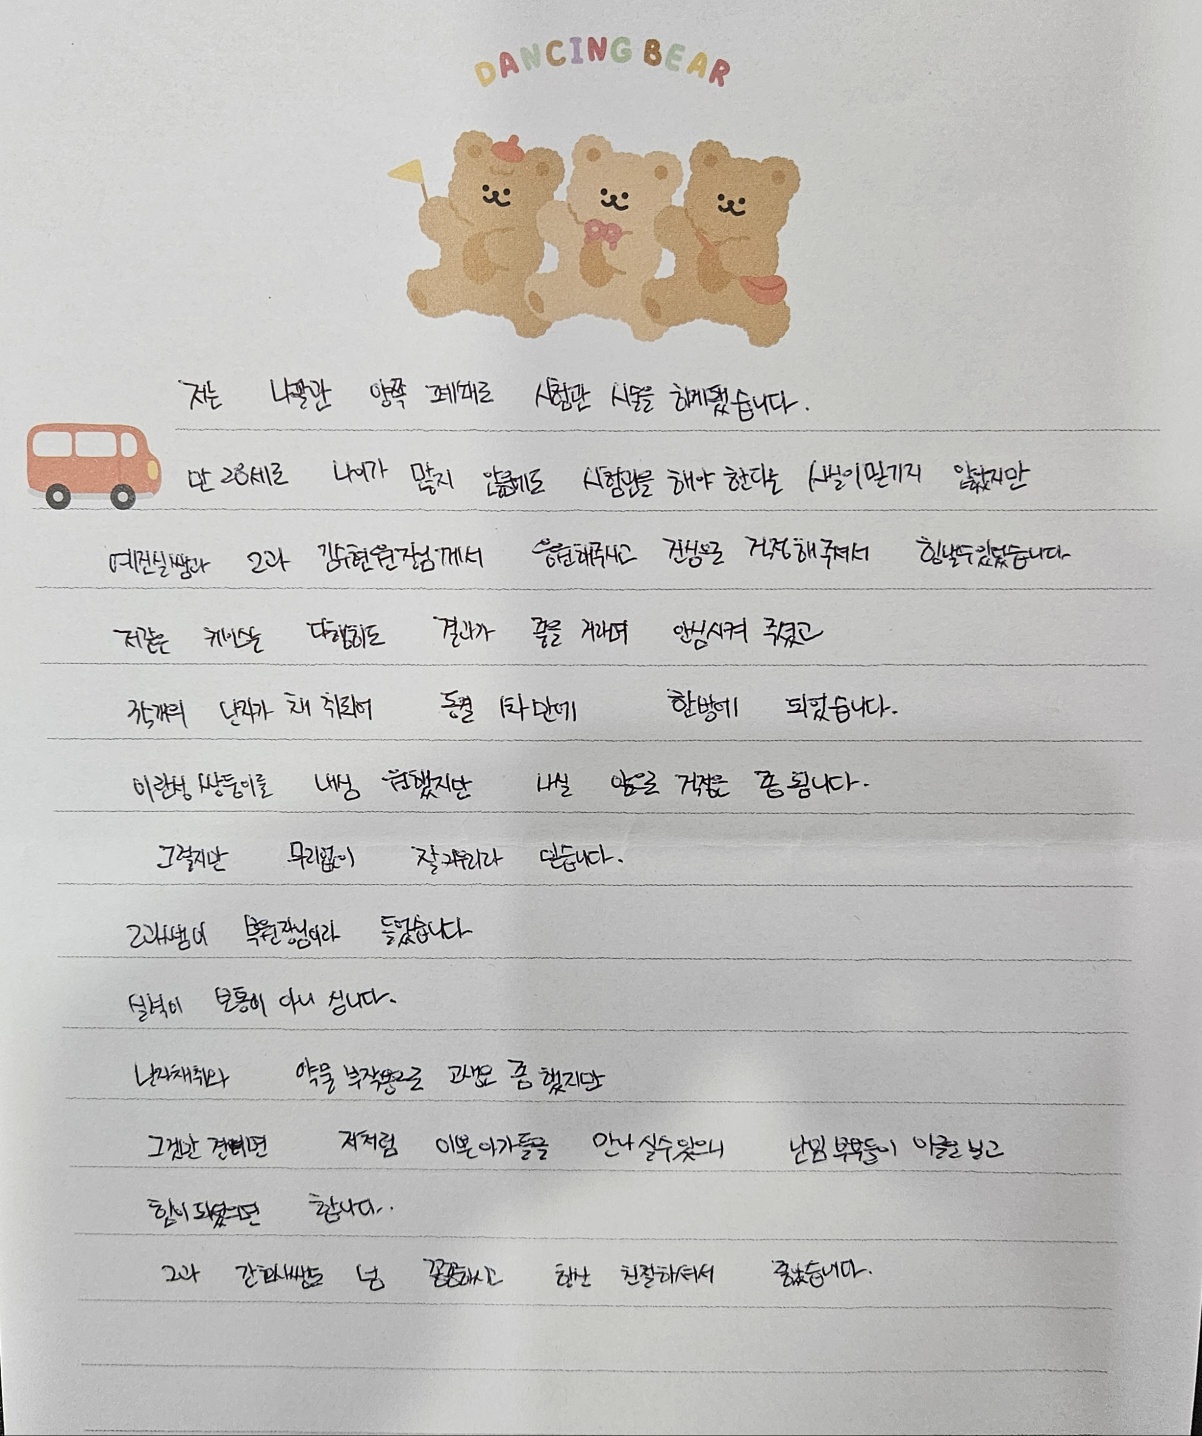 DANCING BEAR
저는 나팔관 양쪽 폐쇄로 시험관 시술을 하게됐습니다.
만 28세로 나이가 많지 않음에도 시험관을 해야 한다는 사실이 믿기지 않았지만
예진실쌤과 2과 김수현원장님께서 응원해주시고 진심으로 걱정해주셔서 힘낼수있었습니다
저같은 케이스는 다행히도 결과가 좋을 거라며 안심시켜 주셨고
난자가 채취되어 동결 1차만에 한방에 되었습니다.
이란성 쌍둥이를 내심 원했지만 사실 앞으로 걱정은 좀 됩니다.
그렇지만 무리없이 잘 키우리라 믿습니다.
2과쌤이 부원장님이라 들었습니다
실력이 보통이 아니 십니다.
난자채취와 약물 부작용으로 고생도 좀 했지만
그것만 견디면 저처럼 이쁜아가들을 만나실수있으니 난임부부들이 이글을 보고
힘이 되셨으면 합니다..
2과 간호사쌤도 넘 꼼꼼하시고 항상 친절하셔서 좋았습니다.